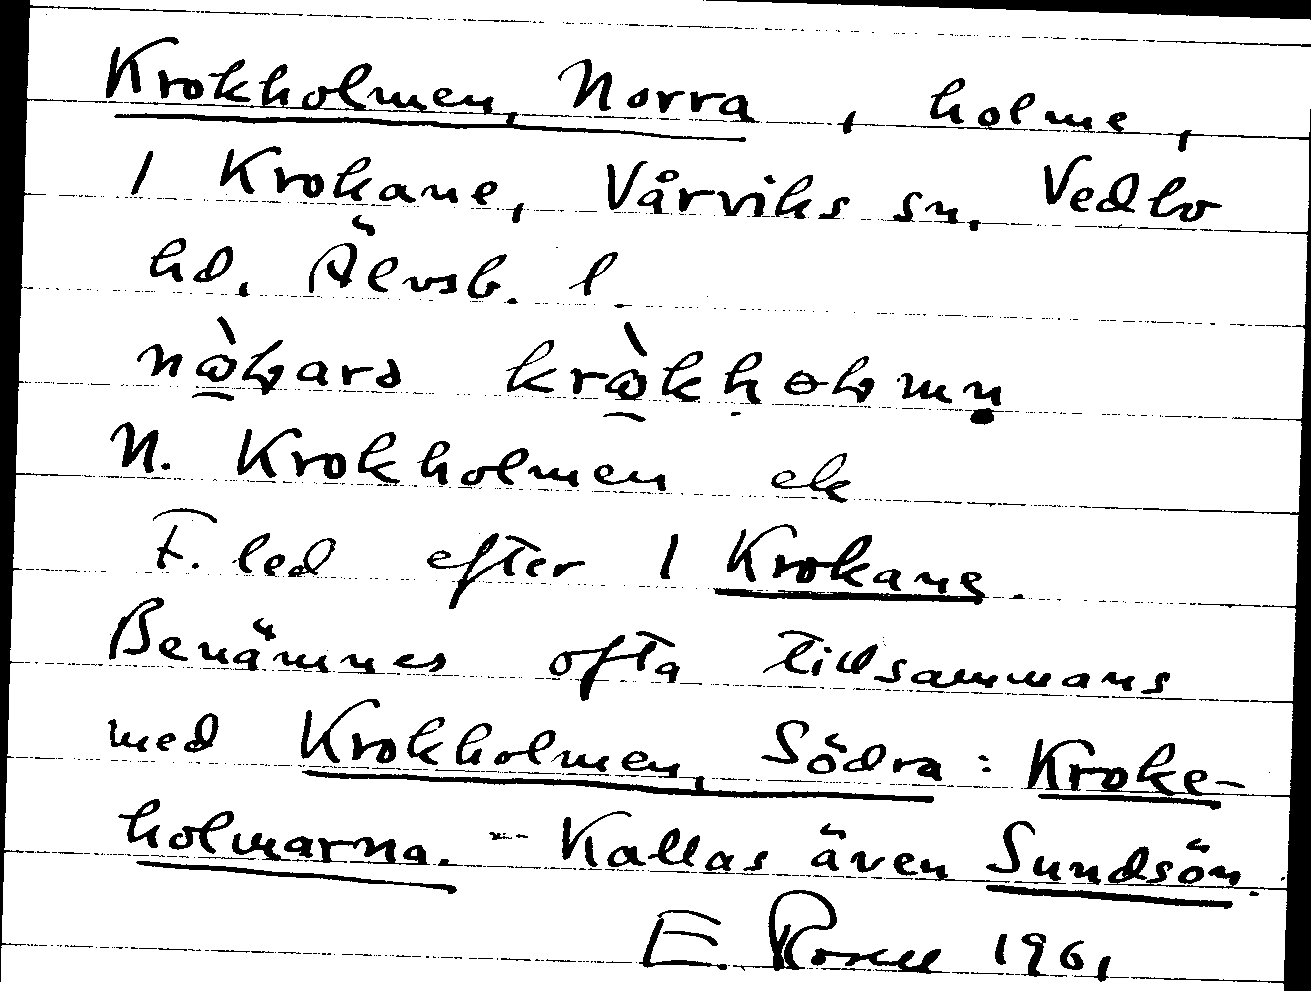 Krokholmen, Norra, holme,
1 Krokane, Vårviks sn. Vedbo
hd. Älvsb. l.
N. Krokholmen ek
F. led efter 1 Krokane.
Benämnes ofta tillsammans
med Krokholmen, Södra: Kroke-
holmarna. - Kallas även Sundsön.
E. Rosell 1961